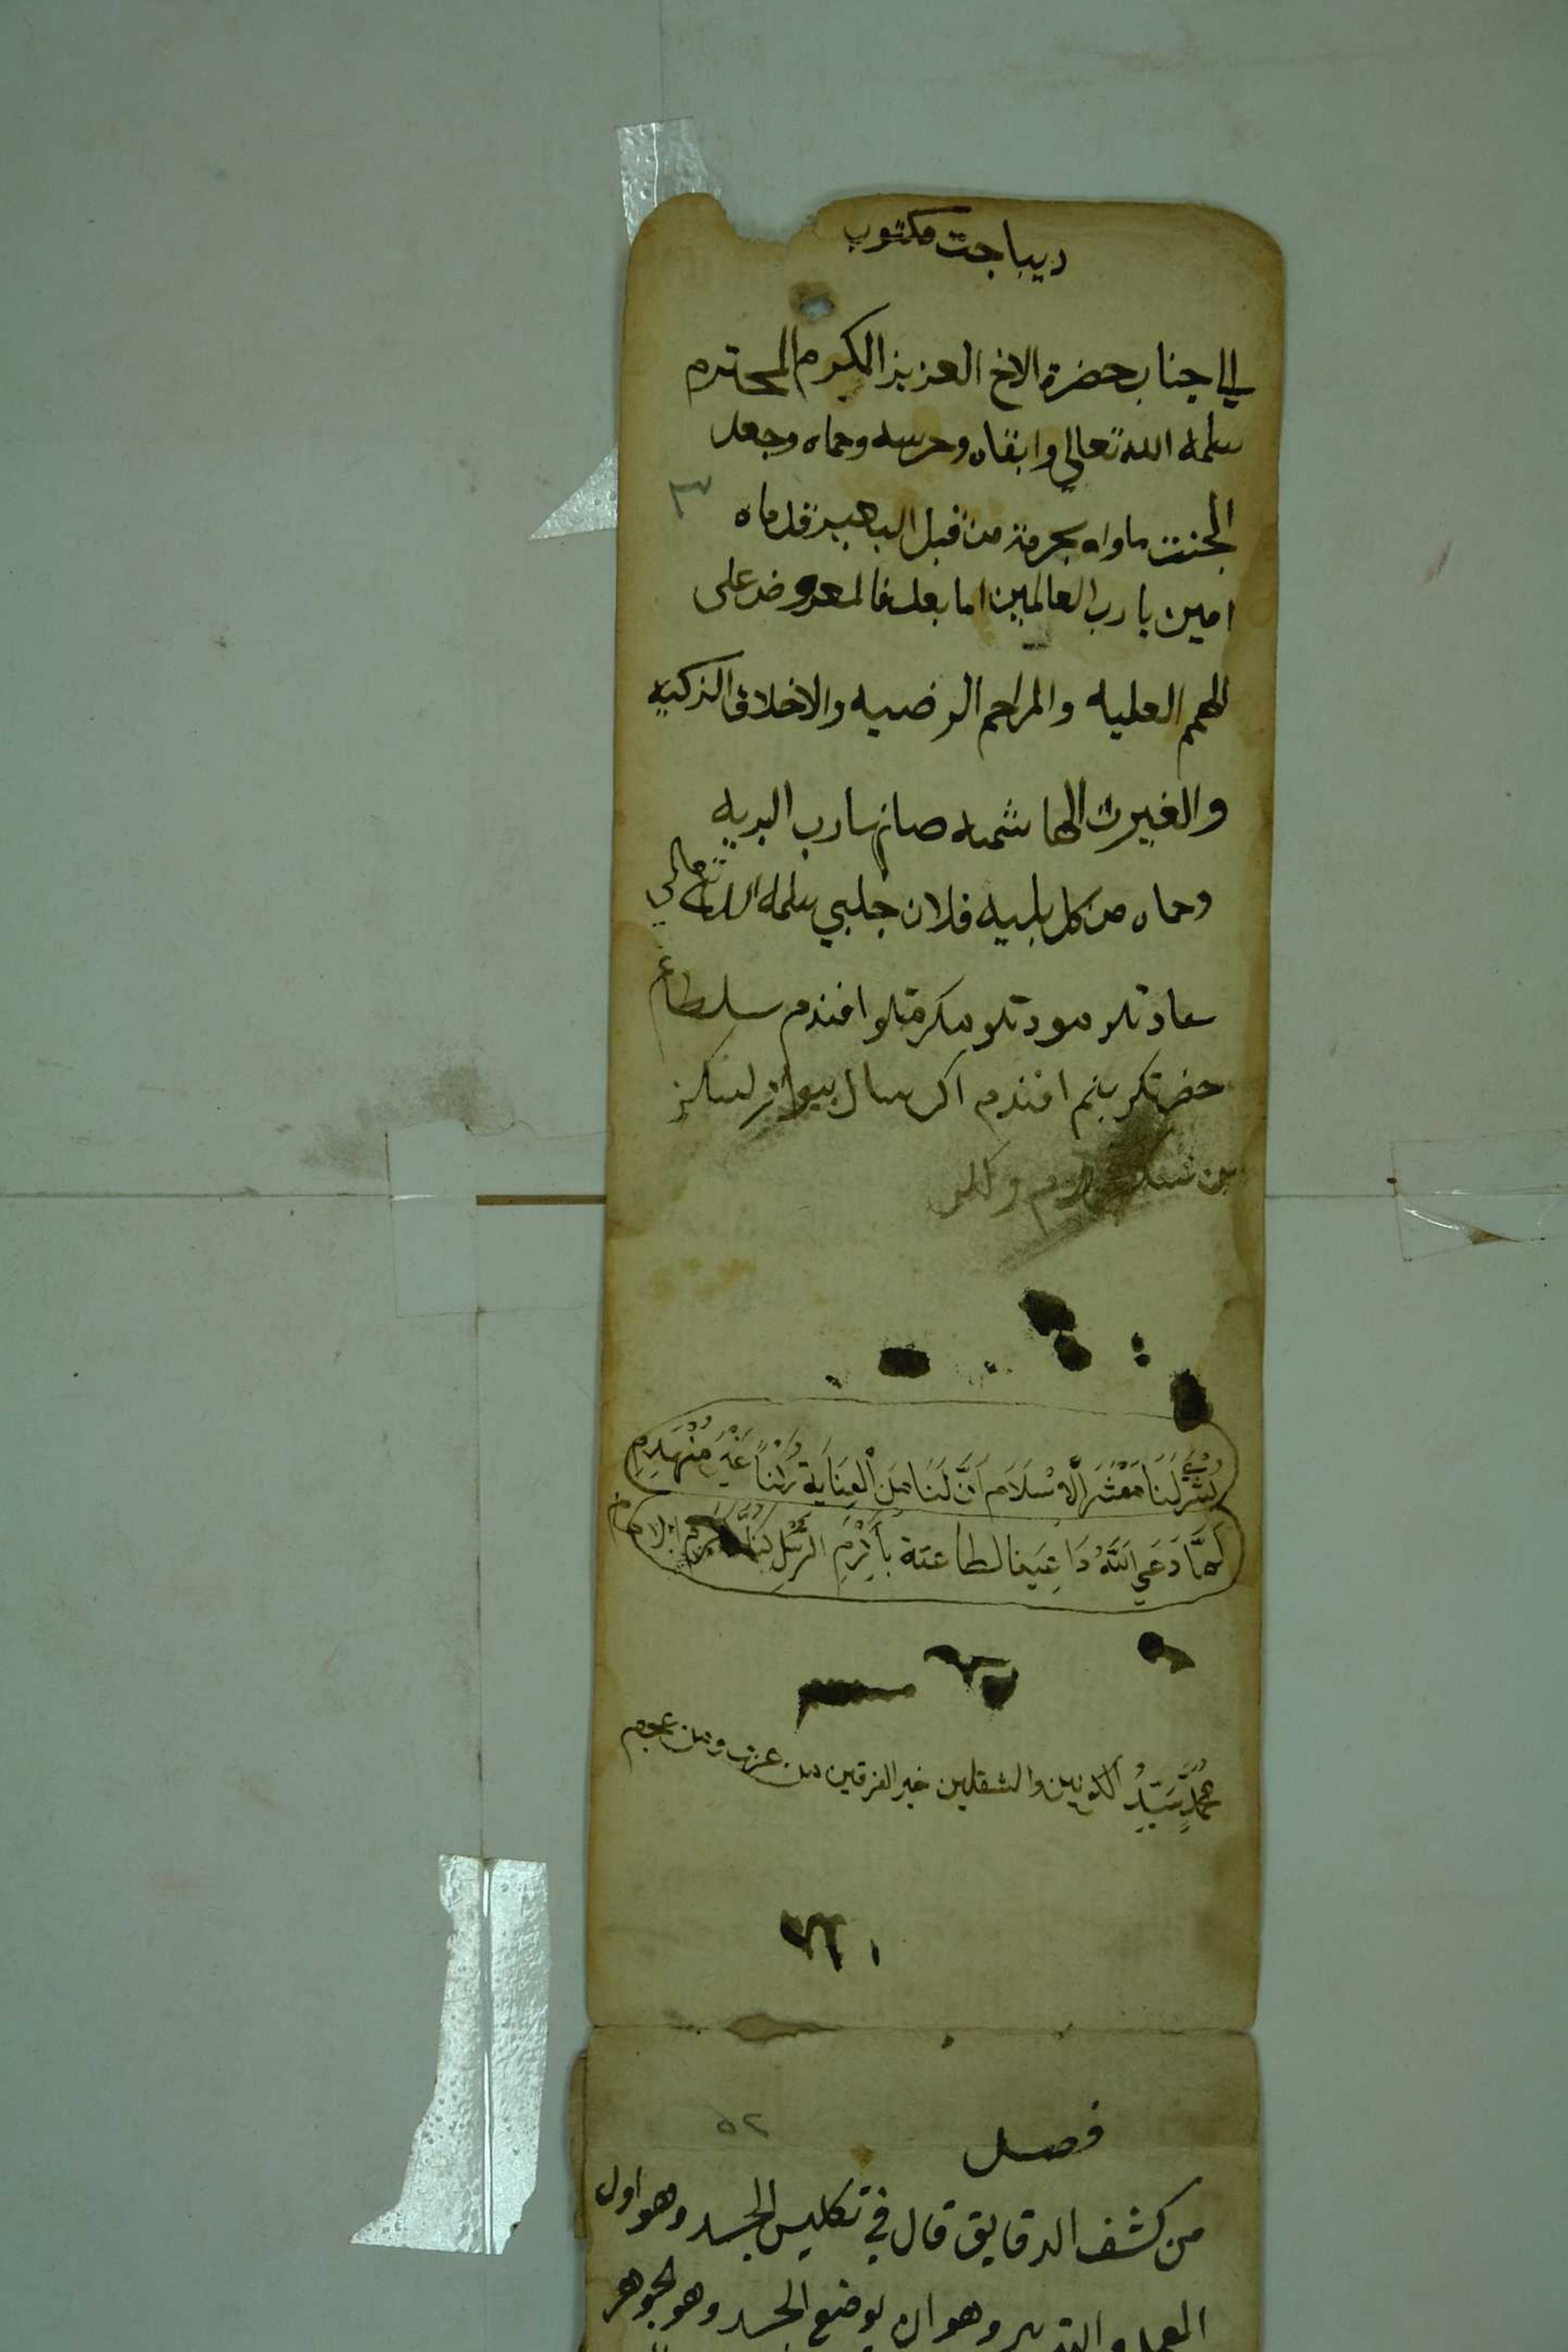 ديباجت مكتوب
الي جناب حضرة الاخ العزيز المكرم المحترم
سلمه الله تعالي وابقاه وحرسه وحماه وجعل
الجنت ماواه بحرمة من قبل البعير قدماه
امين يا رب العالمين اما بعد فالمعروض على
الهمم العليه والمراحم الرضيه والاخلاق الزكيه
والغيرت الهاشميه صانها رب البريه
وحماه من كل بليه فلان جلبي سلمه الله تعالي
سعادتلو مودتلو مكرمتلو افندم سلطانم
حضرتلري بنم افندم اكر سوال
٣
بُشْرَي لَنَا مَعْشَرَ الْاِسْلَامِ اَنَّ لَنَا مِنَ الْعِنَايَةِ رُكْناً غَيْرَ مُنْهَدِمِ
لَمَّا دَعَي اللَّهُ دَاعِينَا لطاعته بِأَكْرَمِ الرُّسْلِ كُنَّا اكرم الامم
مُحَمَّدٌ سَيِّدُ الكونين والثقلين خير الفرقين من عرب ومن عجم
٥٢
فصل
من كشف الدقايق قال في تكليس الجسد وهو اول
العمل والتدبير وهو ان يوضع الجسد وهو الجوهر